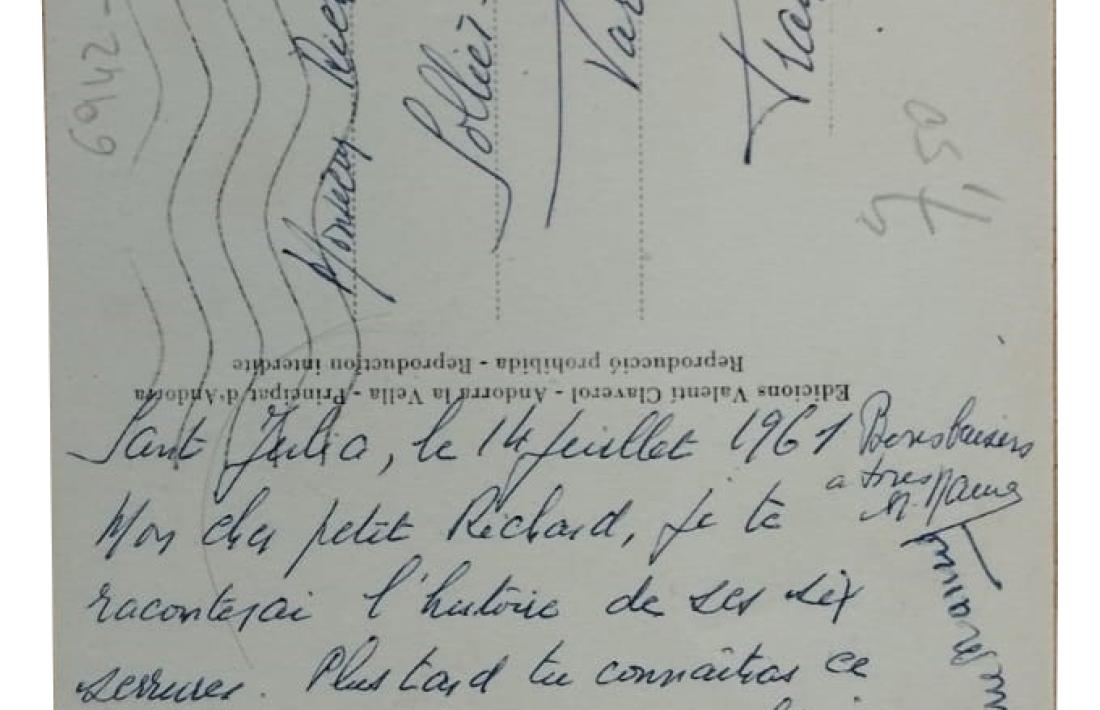 6942-
Monsieur
Sollies-
Var
7,50
Edicions Valenti Claverol - Andorra la Vella - Principat d'Andorra
Reproducció prohibida - Reproduction interdite
Sant Julia, le 14 juillet 1961
Mon cher petit Richard, je te
raconterai l'histoire de ses six
serrures. Plus tard tu connaîtras ce
Bons baisers
a tous